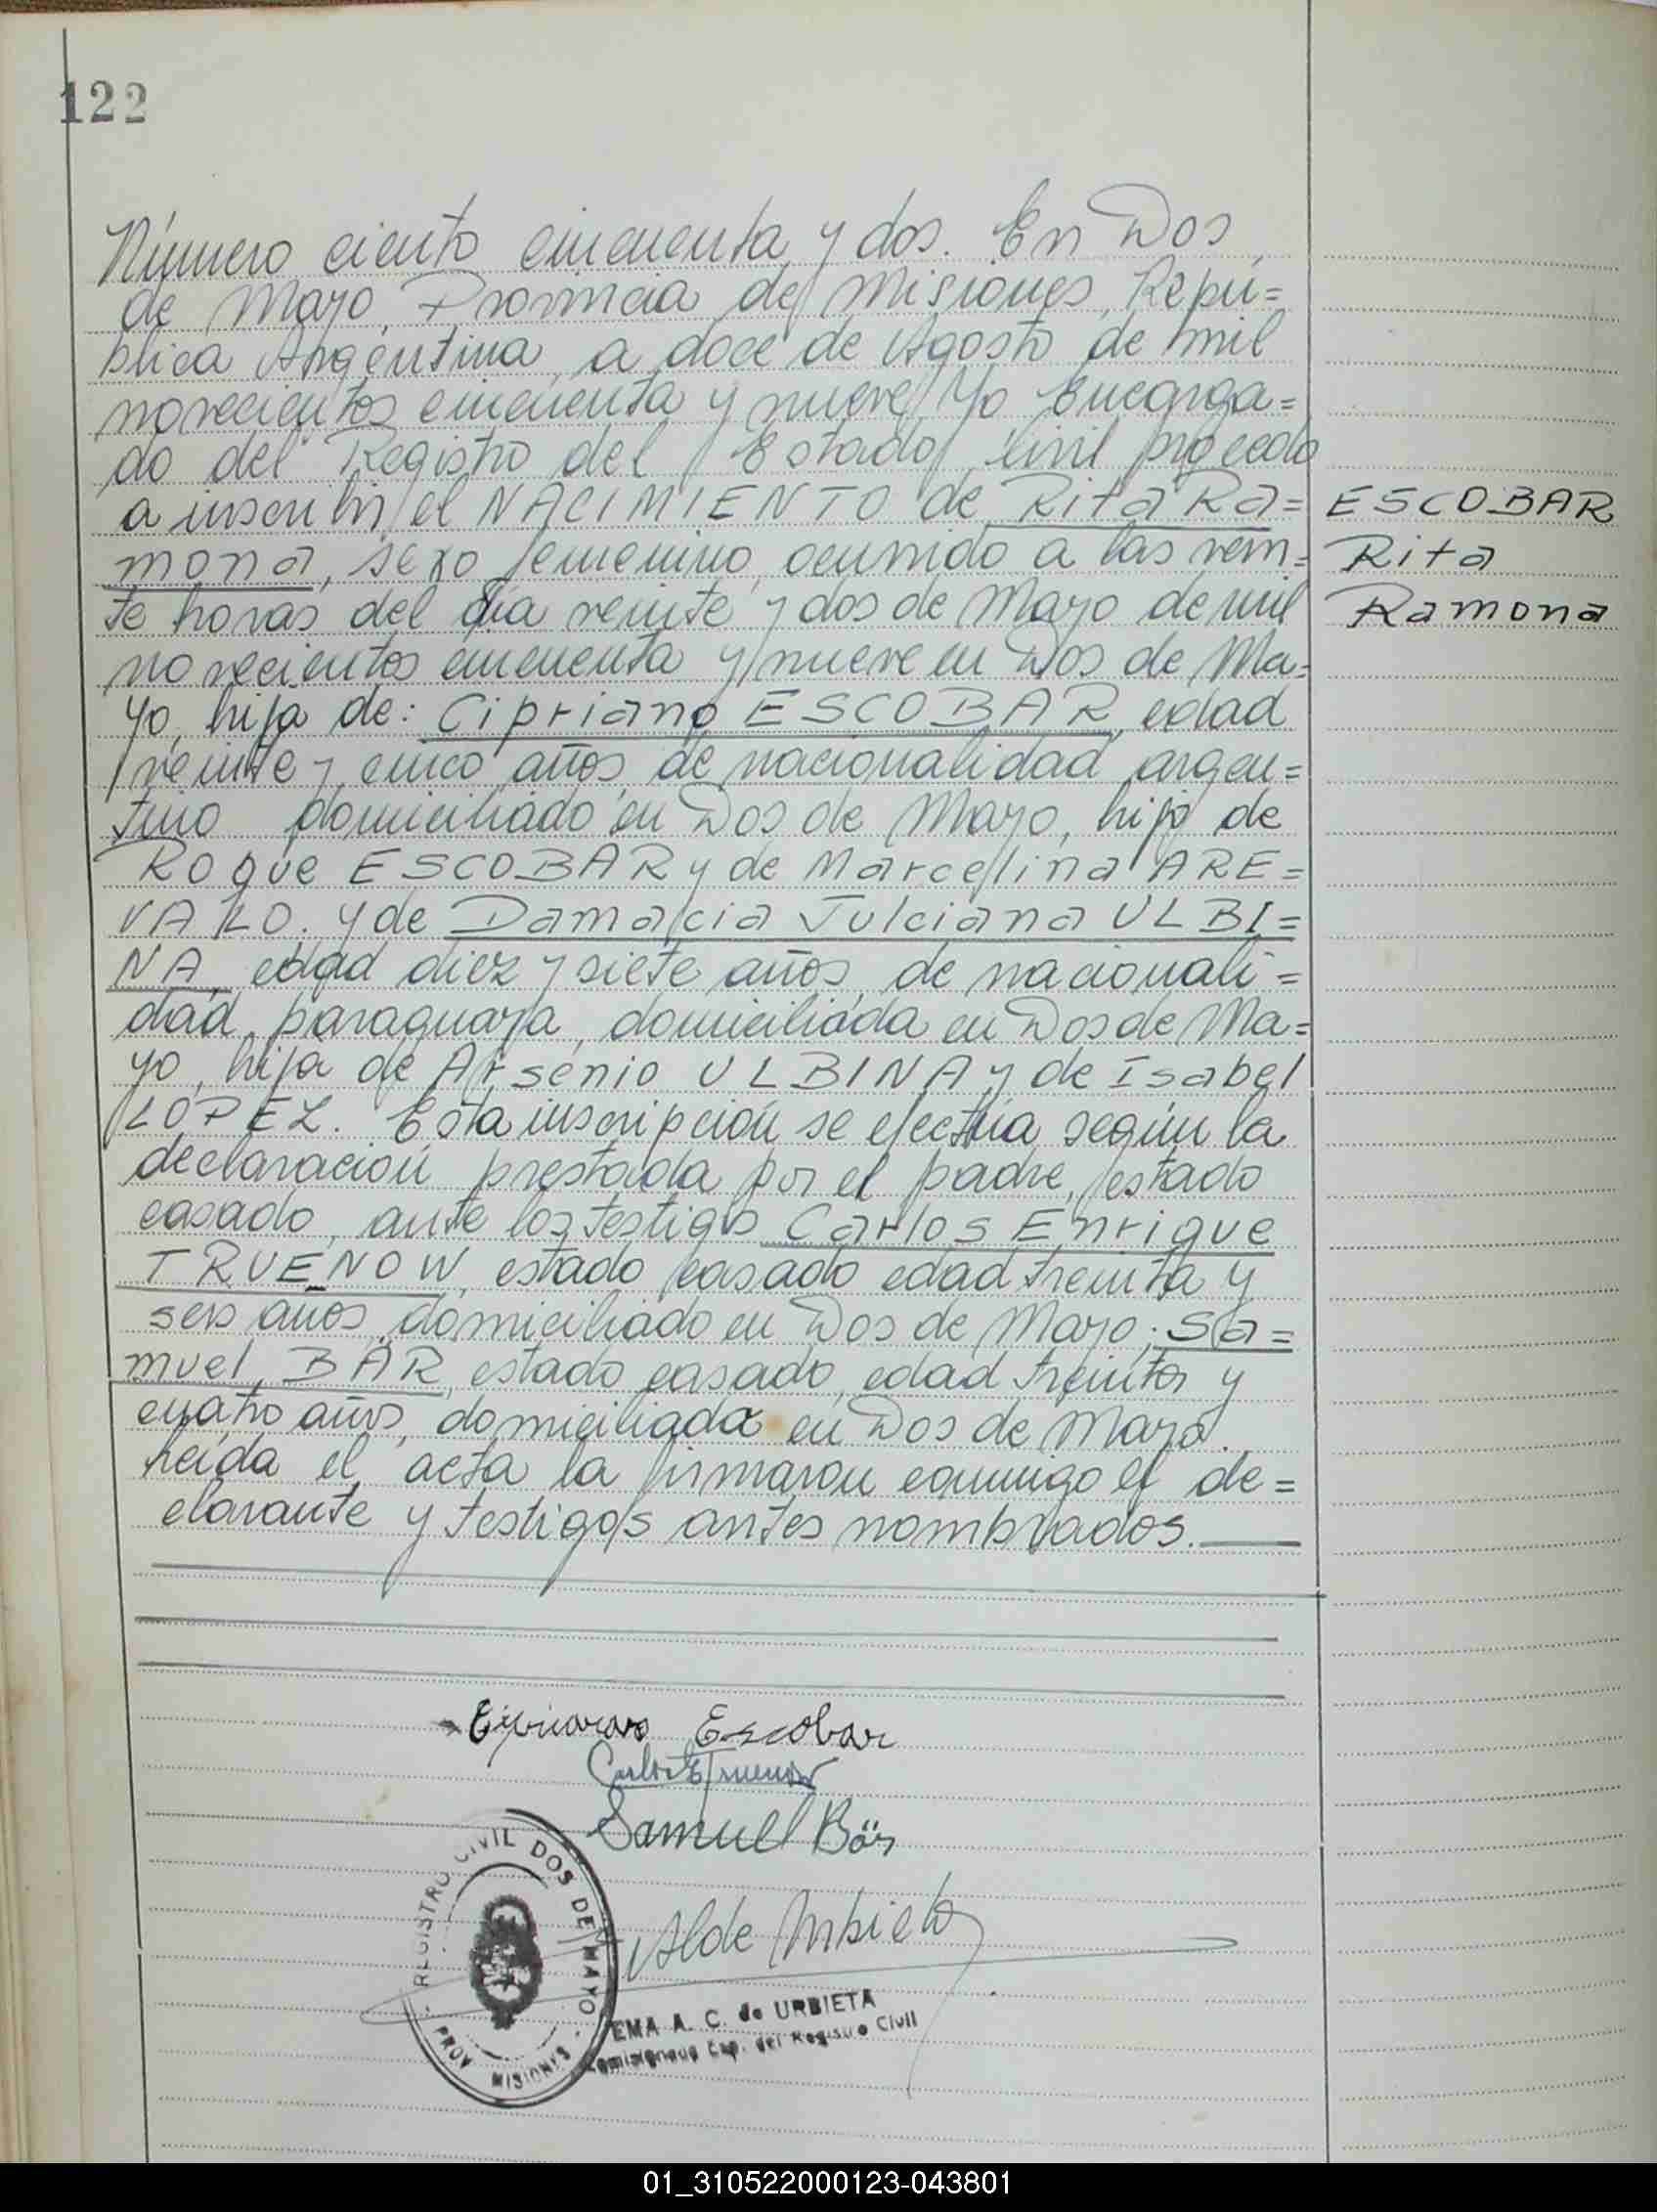 122
Número ciento cincuenta y dos. En Dos
de Mayo, Provincia de Misiones, Repú=
blica Argentina, a doce de Agosto de mil
novecientos cincuenta y nueve Yo Encarga=
do del Registro del Estado Civil procedo
a inscribir el NACIMIENTO de Rita Ra=
mona, sexo femenino, ocurrido a las vein=
te horas del día veinte y dos de Mayo de mil
novecientos cincuenta y nueve en Dos de Ma=
yo, hija de: Cipriano ESCOBAR, edad
veinte y cinco años, de nacionalidad argen=
tino domiciliado en Dos de Mayo, hijo de
Roque ESCOBAR y de Marcelina ARE=
VALO. y de Damacia Julciana ULBI=
NA, edad diez y siete años, de nacionali=
dad, paraguaya, domiciliada en Dos de Ma=
yo, hija de Arsenio ULBINA y de Isabel
LOPEZ. Esta inscripción se efectúa según la
declaración prestada por el padre, estado
casado, ante los testigos Carlos Enrique
TRUENOW, estado casado edad treinta y
seis años, domiciliado en Dos de Mayo; Sa=
muel BÄR, estado casado, edad treinta y
cuatro años, domiciliada en Dos de Mayo.
Leída el acta la firmaron conmigo el de=
clarante y testigos antes nombrados.
ESCOBAR
Rita
Ramona
Cipriano Escobar
Carlos E Truenow
Samuel Bär
REGISTRO CIVIL DOS DE MAYO
PROV MISIONES
A. C. de Urbieta
EMA A. C. de URBIETA
Enc. del Registro Civil
01_310522000123-043801